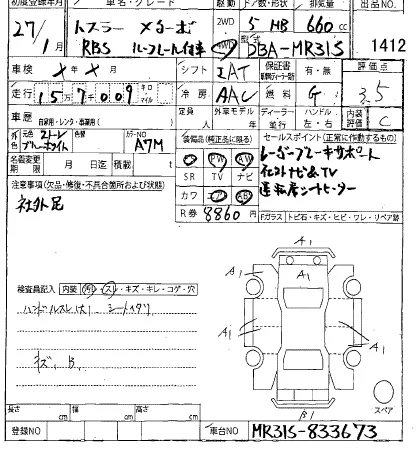 初度登録年月 車名・グレード 駆動 ドア数・形状 排気量 出品NO
27/1月 ハスラー ターボ 2WD 4WD 5 HB 660cc
RBS ルーフレール付車 型式 DBA-MR31S 1412
車検 ×年×月 シフト IAT 保証書 有・無 評価点
走行 157,009 キロ マイル 冷房 AAC 燃料 G 3.5
車歴 自家用・レンタ・事業用( ) 定員 人 外車モデル 年 ディーラー 並行 ハンドル 左・右 内装評価 C
元色 色 カラーNO A7M 装備品(純正品に限る) セールスポイント(正常に動作するもの)
名義変更期限 月 日迄 積載 t PS PW ナビ レーダーブレーキサポート
注意事項(欠品・修復・不具合箇所および状態) SR TV ナビ 社外ナビ&TV
社外 カワ エアB ABS 運転席シートヒーター
R券 8860円 Fガラス トビ石・キズ・ヒビ・ワレ・リペア跡
検査員記入 内装 汚・スレ・キズ・キレ・コゲ・穴
ハンドルスレ(大) シート
キズ、B
A1
A1
A1
A1
A1
A1
B1
スペア
長さ cm 幅 cm 高さ cm
登録NO 車台NO MR31S-833673